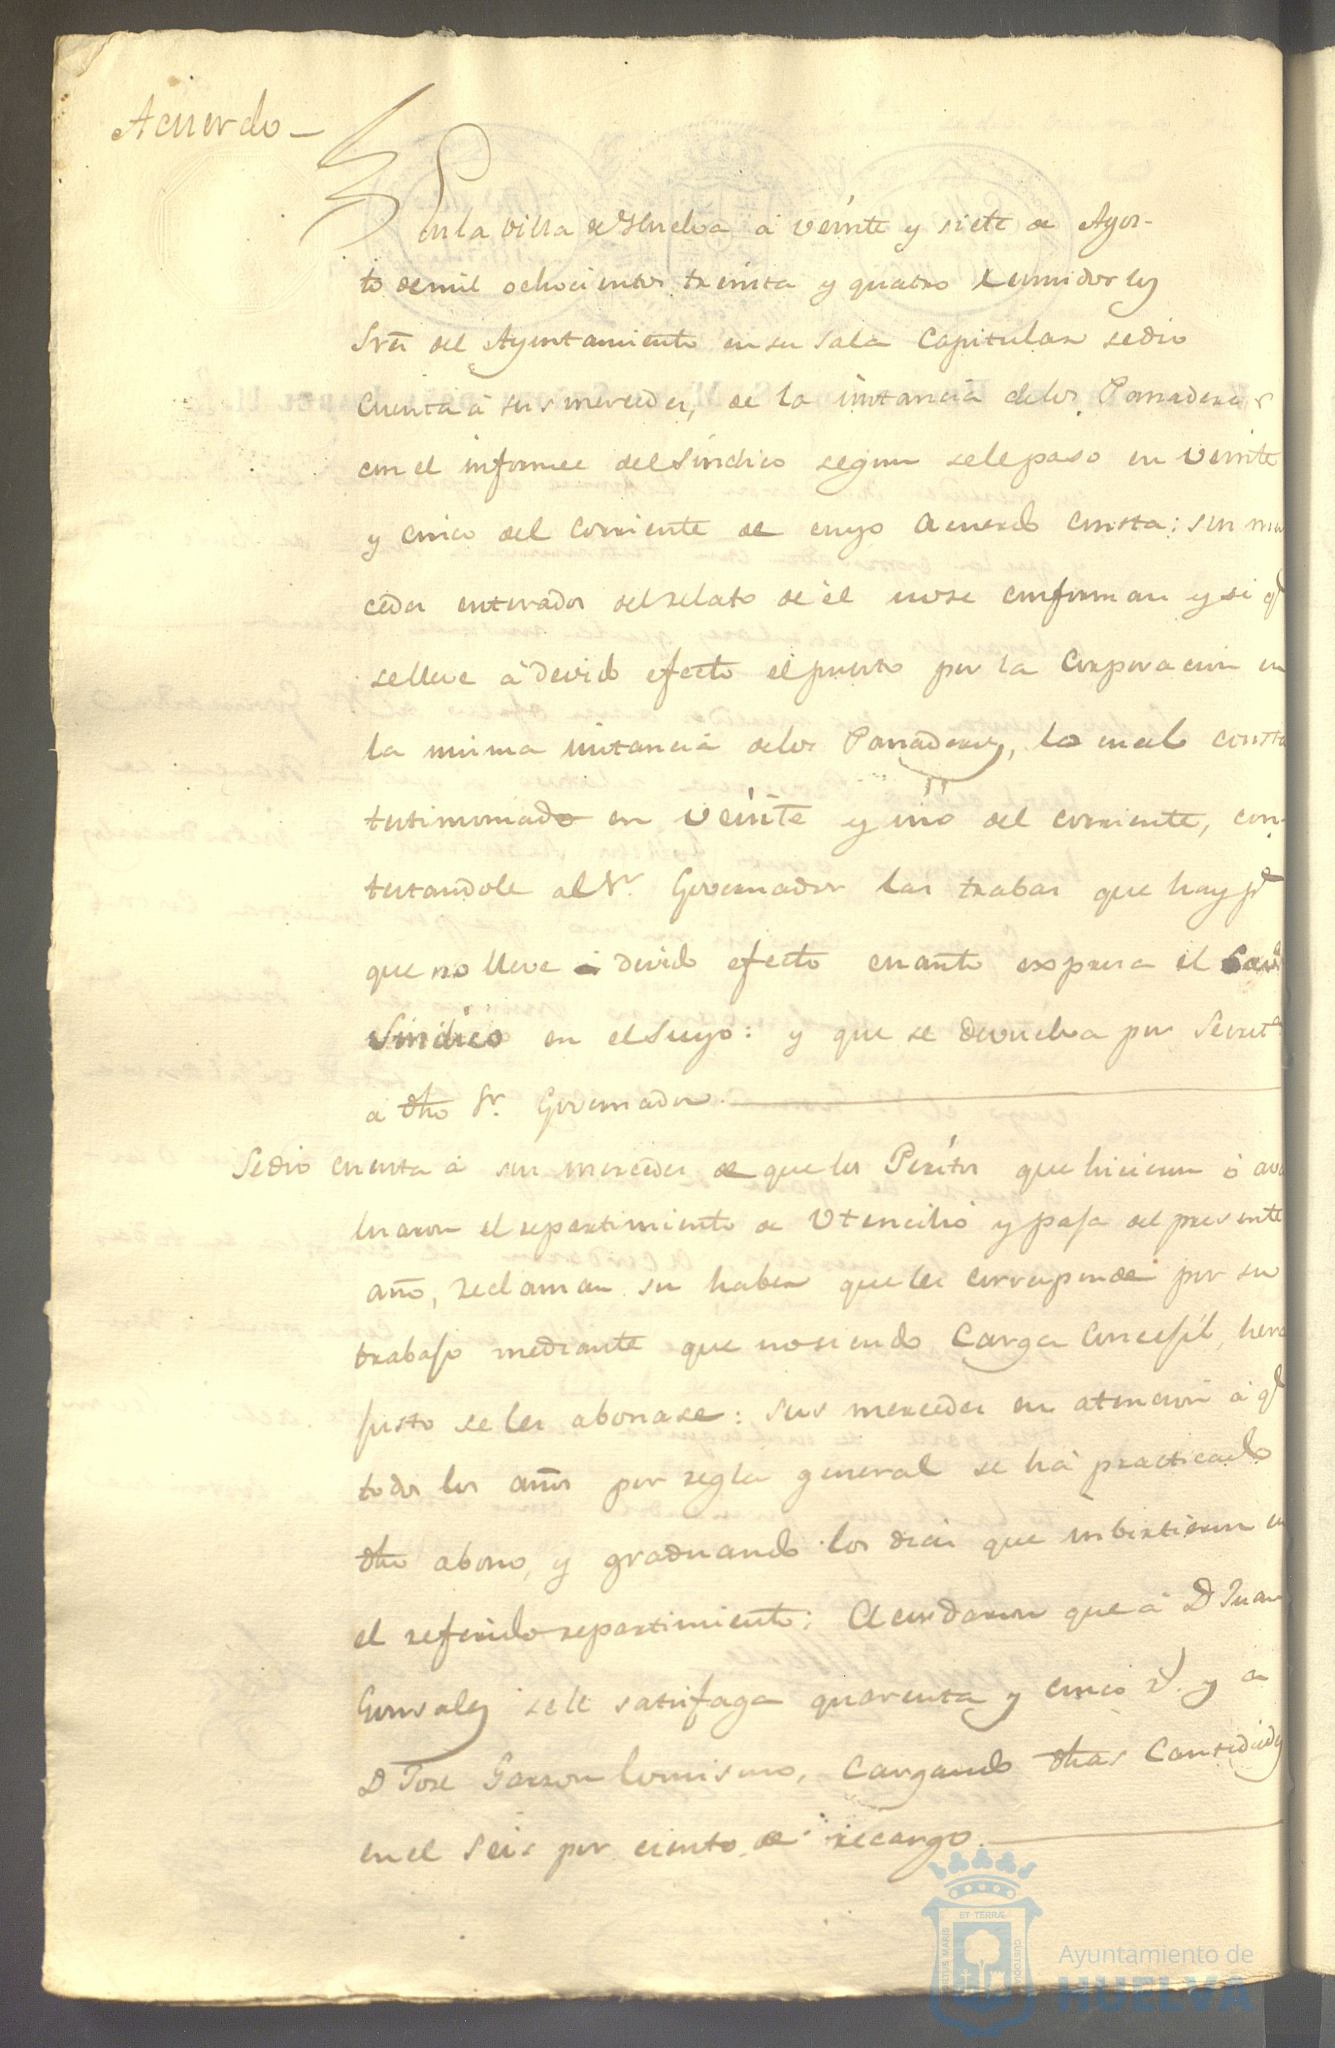 Acuerdo
En la villa de Huelva á veinte y siete de Agos-
to de mil ochocientos treinta y quatro reunidos los
Sres del Ayuntamiento en su sala Capitular se dio
cuenta á sus mercedes, de la instancia de los Panaderos
con el informe del Síndico segun se le paso en veinte
y cinco del corriente de cuyo acuerdo consta: sus mer
cedes enterados del relato de él no se conforman y si q.e
se lleve á devido efecto el puesto por la Corporacion en
la misma instancia de los Panaderos, lo cual consta
testimoniado en veinte y uno del corriente, con-
testandole al Sr. Governador las trabas que hay p.a
que no lleve á devido efecto cuanto expresa el
Sindico en el suyo: y que se devuelva por Secret.a
a dho Sr. Governador.
Se dio cuenta á sus mercedes de que los Peritos que hicieron ó ava
luaron el repartimiento de Utencilio y paja del presente
año, reclaman su haber que les corresponde por su
trabajo mediante que no siendo Carga Concejil, hera
justo se les abonase: sus mercedes en atencion á q.e
todos los años por regla general se há practicado
dho abono, y graduando los dias que imbirtieron en
el referido repartimiento: Acordaron que á D Juan
Gonsales se le satisfaga quarenta y cinco r.s y a
D Jose Garzon lo mismo, cargando dhas Cantidades
en el seis por ciento de recargo.
ET TERRÆ
PORTUS MARIS
CUSTODIA
Ayuntamiento de
HUELVA